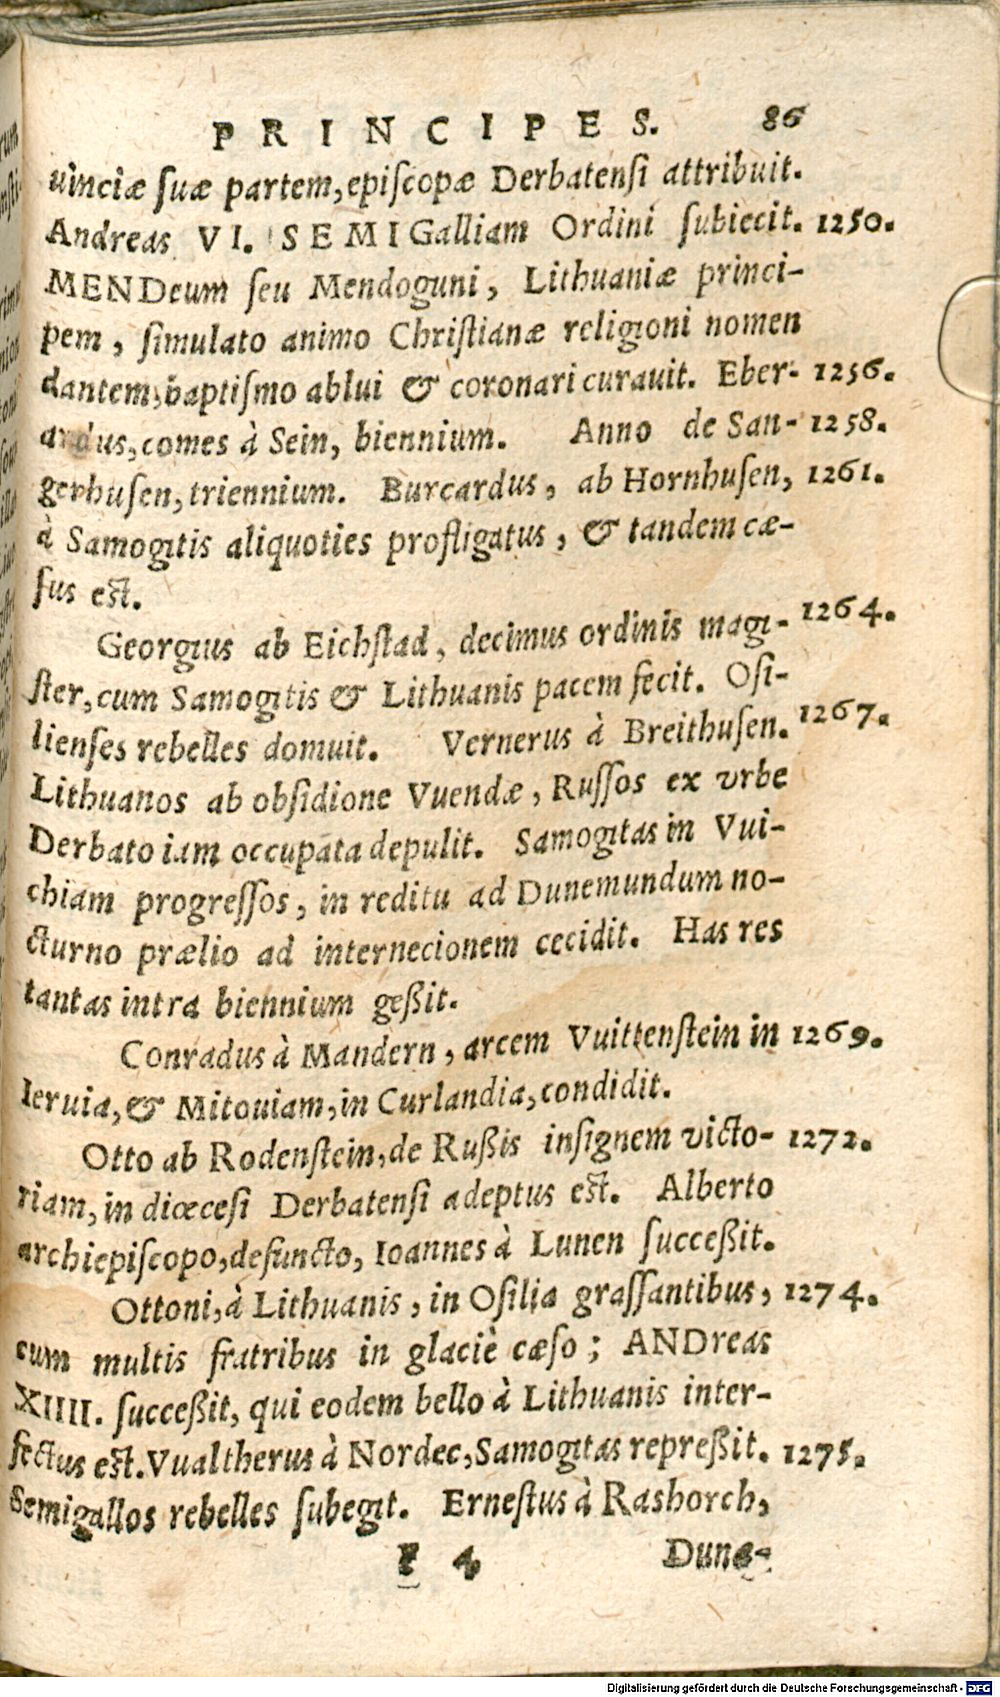 PRINCIPES. 86
uinciæ suæ partem, episcopæ Derbatensi attribuit.
Andreas VI. SEMIGalliam Ordini subiecit. 1250.
MENDeum seu Mendoguni, Lithuaniæ princi-
pem, simulato animo Christianæ religioni nomen
dantem, baptismo ablui & coronari curauit. Eber- 1256.
ardus, comes à Sein, biennium. Anno de San- 1258.
gerhusen, triennium. Burcardus, ab Hornhusen, 1261.
à Samogitis aliquoties profligatus, & tandem cæ-
sus est.
Georgius ab Eichstad, decimus ordinis magi- 1264.
ster, cum Samogitis & Lithuanis pacem fecit. Osi-
lienses rebelles domuit. Vernerus à Breithusen. 1267.
Lithuanos ab obsidione Vuendæ, Russos ex vrbe
Derbato iam occupata depulit. Samogitas in Vui-
chiam progressos, in reditu ad Dunemundum no-
cturno prælio ad internecionem cecidit. Has res
tantas intra biennium geßit.
Conradus à Mandern, arcem Vuittenstein in 1269.
Ieruia, & Mitouiam, in Curlandia, condidit.
Otto ab Rodenstein, de Rußis insignem victo- 1272.
riam, in diœcesi Derbatensi adeptus est. Alberto
archiepiscopo, defuncto, Ioannes à Lunen succeßit.
Ottoni, à Lithuanis, in Osilia grassantibus, 1274.
cum multis fratribus in glaciè cæso; ANDreas
XIIII. succeßit, qui eodem bello à Lithuanis inter-
fectus est. Vualtherus à Nordec, Samogitas repreßit. 1275.
Semigallos rebelles subegit. Ernestus à Rashorch,
F 4 Dune-
Digitalisierung gefördert durch die Deutsche Forschungsgemeinschaft - DFG